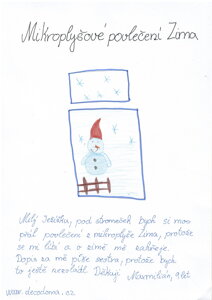 Mikroplyšové povlečení Zima
Milý Ježíšku, pod stromeček bych si moc
přál povlečení z mikroplyše Zima, protože
se mi líbí a v zimě mě zahřeje.
Dopis za mě píše sestra, protože bych
to ještě nezvládl. Děkuji Maxmilián, 4 let.
www.decodoma.cz